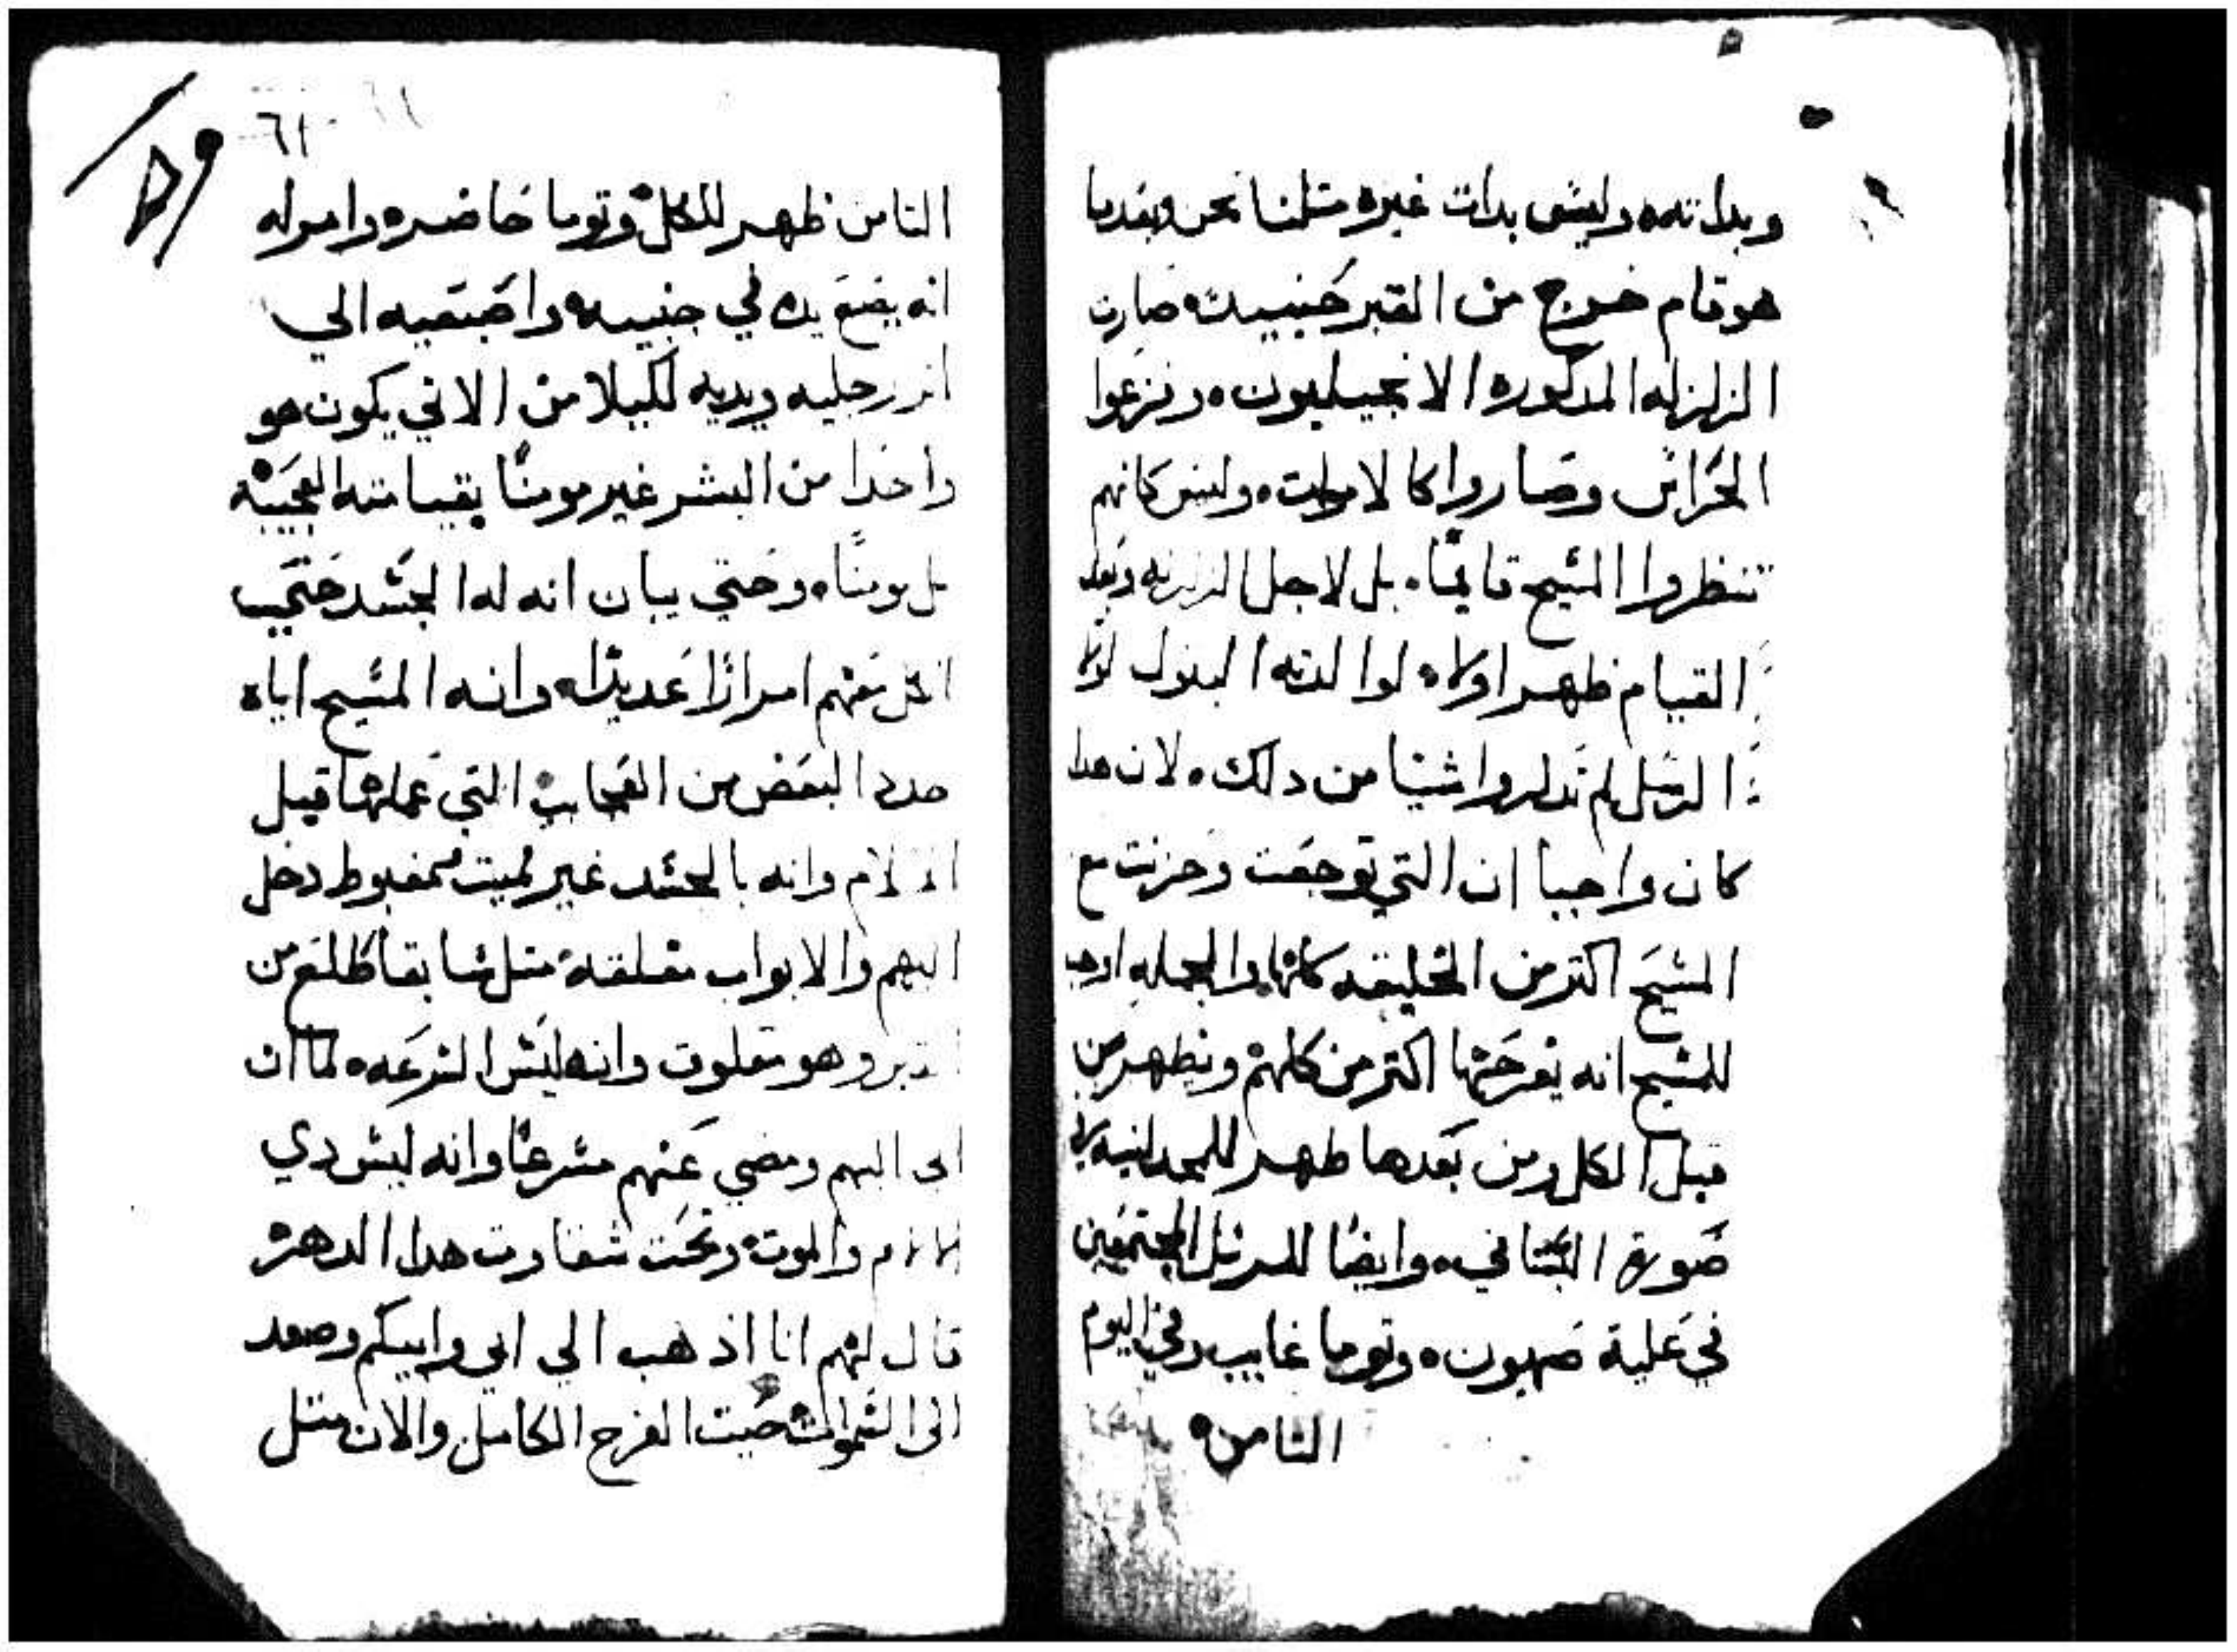 وبداته وليس بدات غيره متلنا نحن وبعدما
هو قام خرج من القبر حينيد صارت
الزلزله المدكوره الانجيليون وفزعوا
الحراس وصاروا كالاموات وليس كانهم
تنظروا المسيح قايمًا بل لاجل الزلزله وبعد
القيام ظهر اولا لوالدته البتول
الرسل لم شيا من دلك لان هدا
كان واجبا ان التي توجعت وحزنت مع
المسيح اكتر من الخليقه كلها والجمله
للمسيح انه يفرحها اكتر من كلهم ويظهر من
قبل الكل ومن بعدها ظهر للمجدلانيه
صورة البستاني وايضا للرسل المجتمعين
في علية صهيون وتوما غايب وفي اليوم
الثامن
٦١
التامن ظهر للكل وتوما حاضره وامر له
انه يضع يده في جنبيه واصبعيه الي
اثر رجليه ويديه لكيلا من الاتي يكون هو
واحدا من البشر غير مومنًا بقيامته العجيبه
بل مومنًا وحتي يبان انه له الجسد حتي
اكل معهم امرارًا عديدًا وانه المسيح اياه
جدد البعض من العجايب التي عملها قبل
الالام وانه بالجسد غير مميت مغبوط دخل
اليهم والابواب مغلقة متل سابقا طلع من
القبر وهو مغلوق وانه ليس السرعه لما ان
اتى اليهم ومضي عنهم مسرعًا وانه ليس دي
الالام والموت وتحت شقاوت هدا الدهر
قال لهم انا اذهب الي ابي وابيكم وصعد
الى السموات حيت الفرح الكامل والان متل